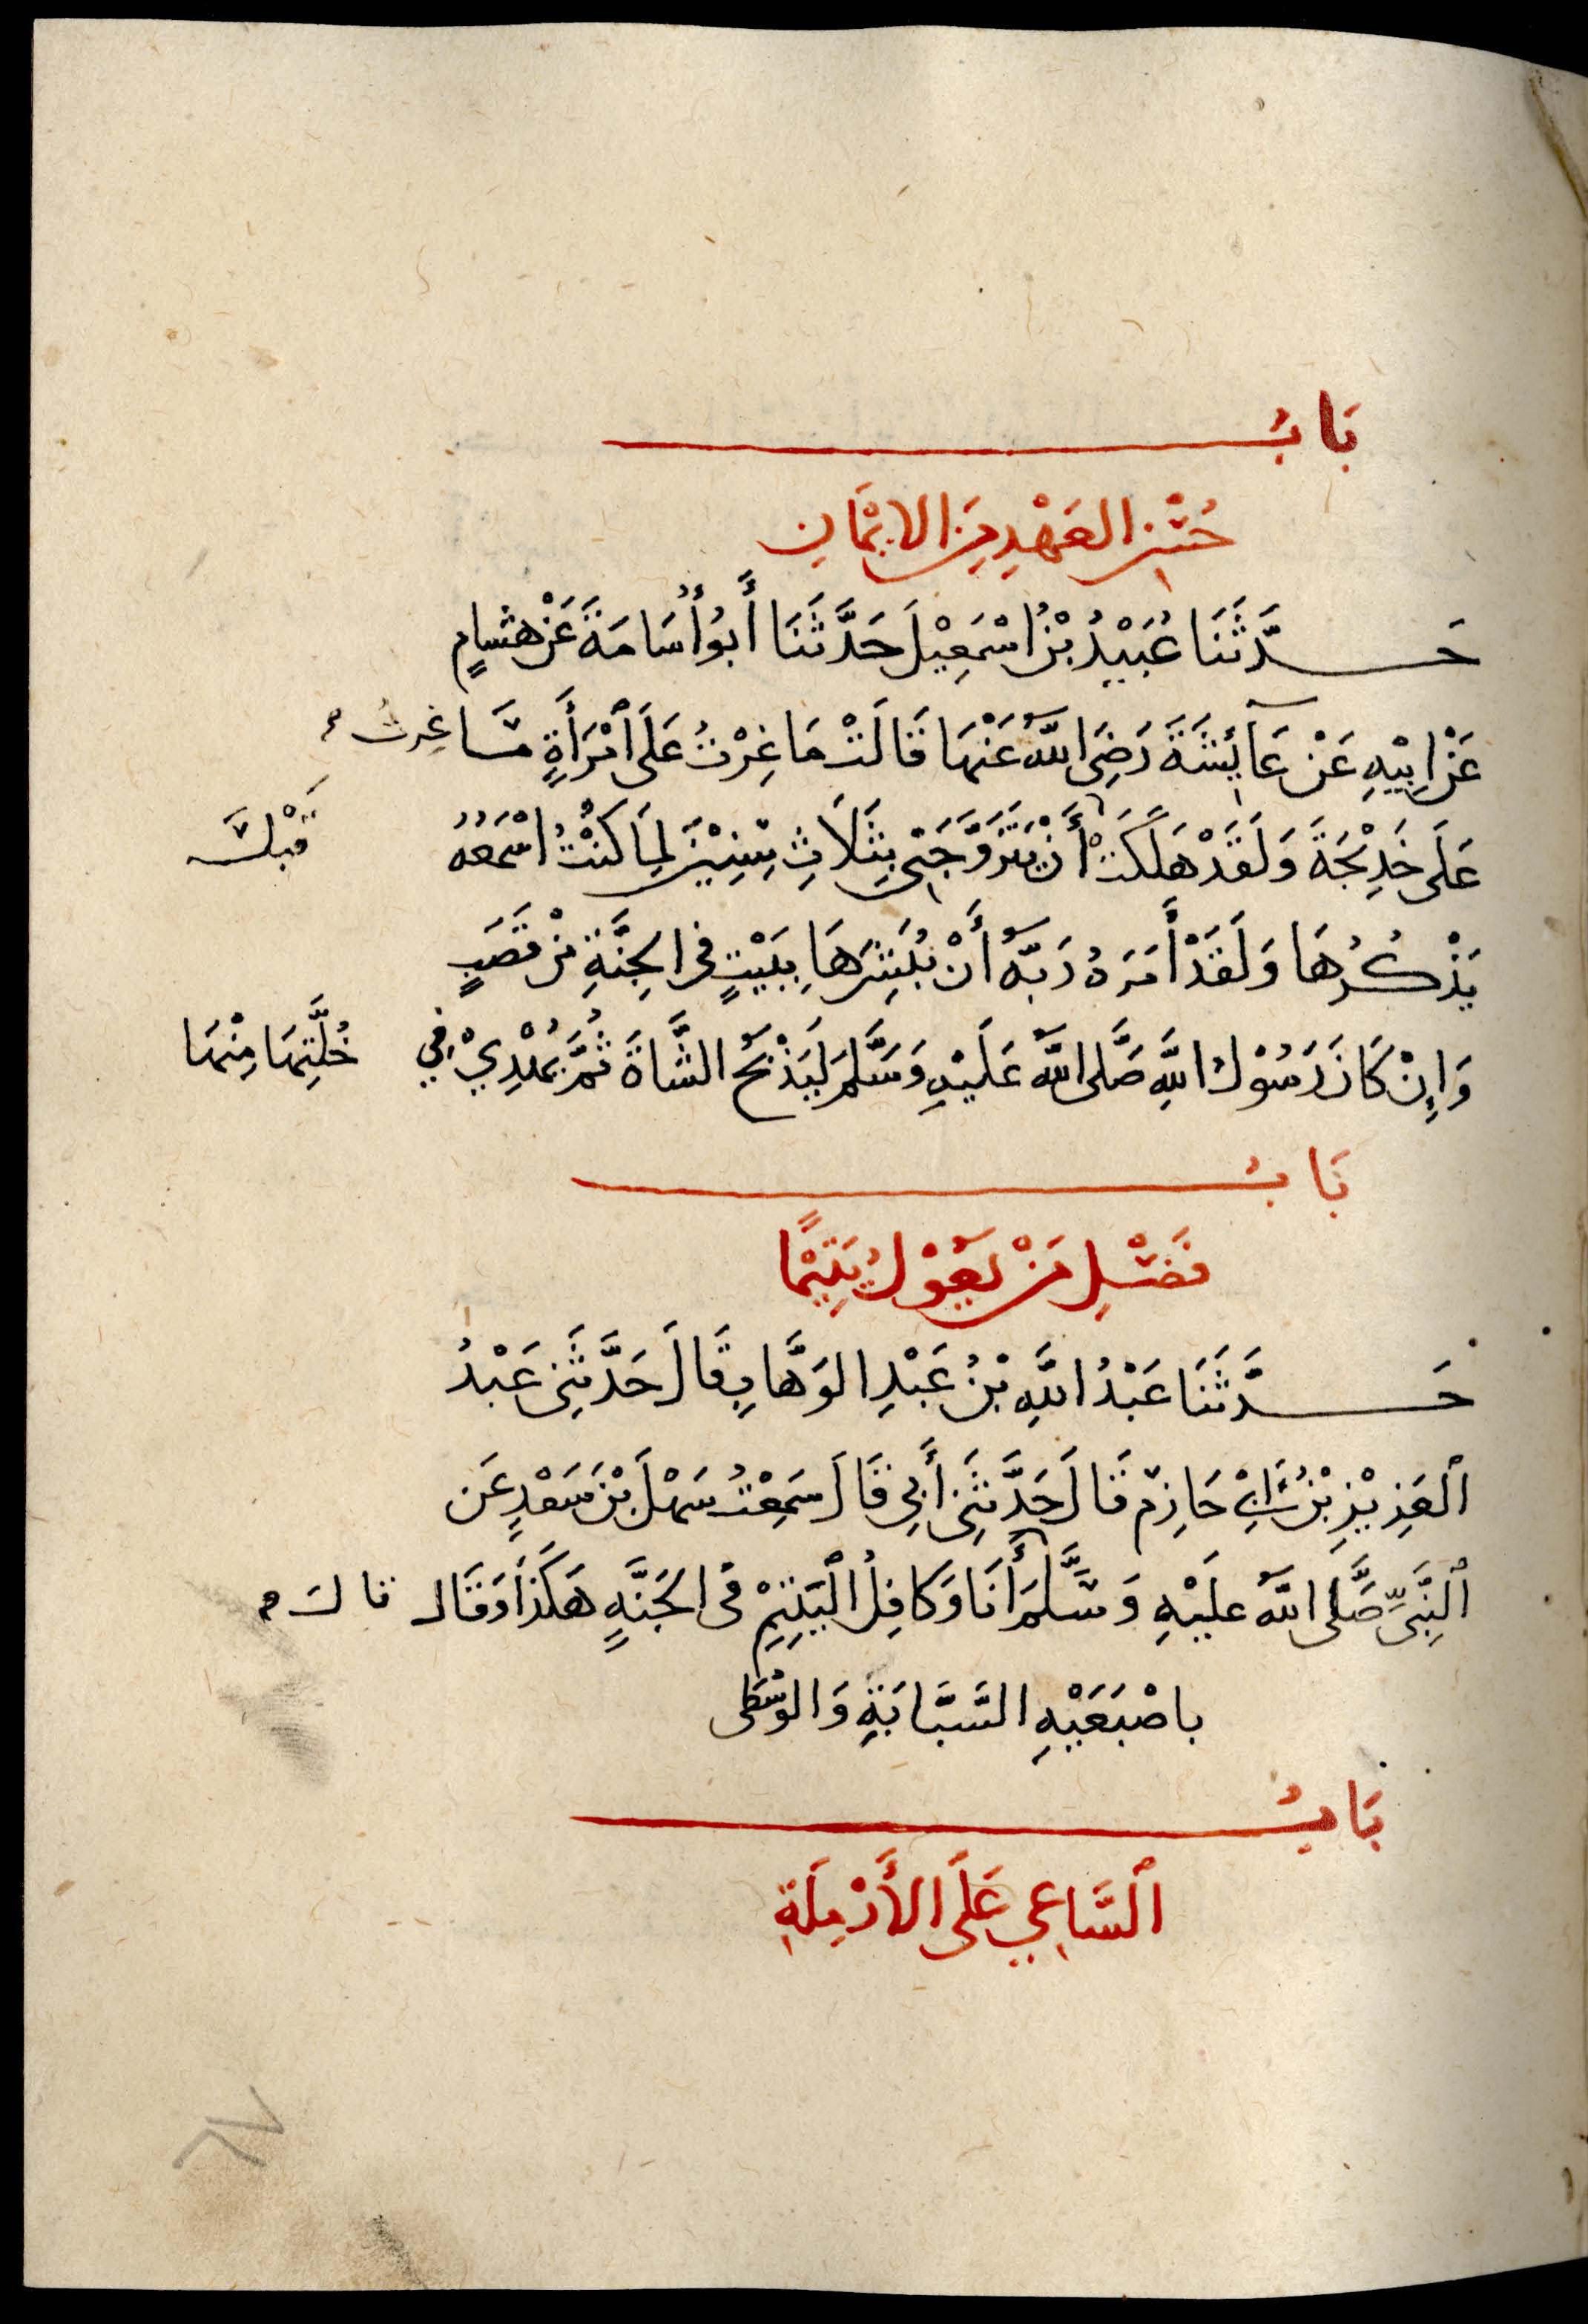 بَابُ
حُسْنِ العَهْدِ مِنَ الايْمَانِ
حَدَّثَنَا عُبَيْدُ بْنُ اسْمَعِيْلَ حَدَّثَنَا أَبُو أُسَامَةَ عَنْ هشَامٍ
عَنْ ابِيْهِ عَنْ عَآئِشَةَ رَضِيَ اللَّهُ عَنْهَا قَالَتْ مَا غِرْتُ عَلَى ٱمْرَأَةٍ مَا غِرتُ
عَلَى خَدِيْجَةَ وَلَقَدْ هَلَكَتْ أَنْ يَتَزَوَّجَنِي بِثَلَاثِ سِنِيْنَ لِمَا كنْتُ اسْمَعُهُ
قَبْلَ
يَذْكُرُهَا وَلَقَدْ أَمَرَهُ رَبُّهُ أَنْ يُبَشِّرَهَا بِبَيْتٍ فى الجَنَّةِ مِنْ قَصَبٍ
وَإِنْ كَانَ رَسُوْلُ اللَّهِ صَلَّى اللَّهُ عَلَيْهِ وَسَلَّمَ لَيَذْبَحُ الشَّاةَ ثُمَّ يُهْدِيْ فِي خُلَّتِهَا مِنْهَا
بَابُ
فَضْلِ مَنْ يَعُوْلُ يَتِيْمًا
حَدَّثَنَا عَبْدُ اللَّهِ بْنُ عَبْدِ الوَهَّابِ قَالَ حَدَّثَنِى عَبْدُ
ٱلعَزِيْزِ بْنُ أَبِيْ حَازِمٍ قَالَ حَدَّثَنِى أَبِي قَالَ سَمِعْتُ سَهْلَ بْنَ سَعْدٍ عَن
ٱلنَّبِيِّ صَلَّى اللَّهُ عَلَيْهِ وَسَلَّمَ أَنَا وَكَافِلُ الْيَتِيْمِ فى الجَنَّةِ هَكَذَا وَقَالَ قالَ
باصْبَعَيْهِ السَّبَّابَةِ وَالوُسْطَى
بَابُ
ٱلسَّاعِي عَلَى الأَرْمِلَةِ